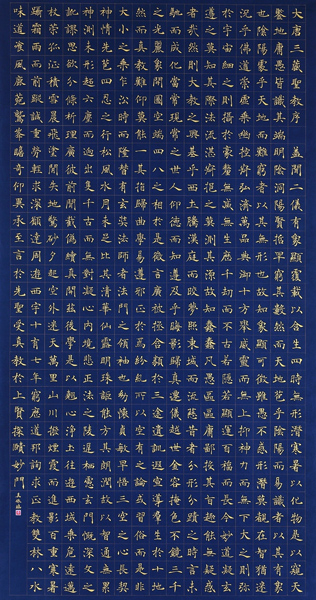 大唐三藏聖教序　蓋聞二儀有象顯覆載以含生四時無形潛寒暑以化物是以窺天
鑒地庸愚皆識其端明陰洞陽賢哲罕窮其數然而天地苞乎陰陽而易識者以其有象
也陰陽處乎天地而難窮者以其無形也故知象顯可徵雖愚不惑形潛莫覩在智猶迷
況乎佛道崇虛乘幽控寂弘濟萬品典御十方舉威靈而無上抑神力而無下大之則彌
於宇宙細之則攝於豪釐無滅無生歷千劫而不古若隱若顯運百福而長今妙道凝玄遵
之莫知其際法流湛寂挹之莫測其源故知蠢蠢凡愚區區庸鄙投其旨趣能無疑惑
者哉然則大教之興基乎西土騰漢庭而皎夢照東域而流慈昔者分形分跡之時言未
馳而成化當常現常之世人仰德而知遵及乎晦影歸真遷儀越世金容掩色不鏡三千
之光麗象開圖空端四八之相於是微言廣被拯含類於三途遺訓遐宣導群生於十地
然而真教難仰莫能一其指歸曲學易遵邪正於焉紛糺所以空有之論或習俗而是非
大小之乘乍沿時而隆替有玄奘法師者法門之領袖也幼懷貞敏早悟三空之心長契
神情先苞四忍之行松風水月未足比其清華仙露明珠詎能方其朗潤故以智通無累
神測未形超六塵而迥出隻千古而無對凝心內境悲正法之陵遲栖慮玄門慨深文之
訛謬思欲分條析理廣彼前聞截偽續真開茲後學是以翹心淨土往遊西域乘危遠邁
杖策孤征積雪晨飛途間失地驚砂夕起空外迷天萬里山川撥煙霞而進影百重寒暑
躡霜雨而前蹤誠重勞輕求深願達周遊西宇十有七年窮歷道邦詢求正教雙林八水
味道飡風鹿菀鷲峯瞻奇仰異承至言於先聖受真教於上賢探賾妙門